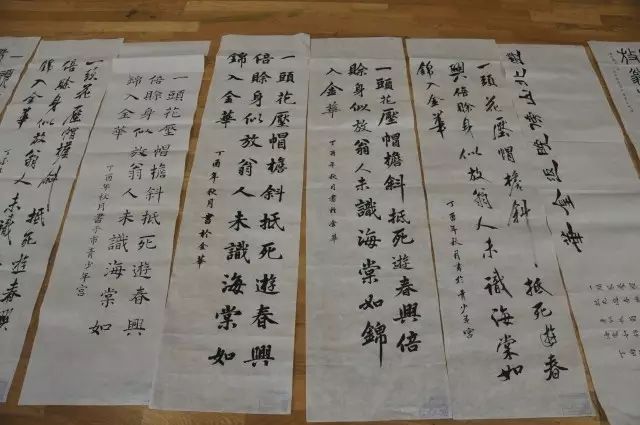 一頭花壓帽檐斜抵死遊春興
倍賒身似放翁人未識
錦入金華
一頭花壓帽檐斜抵死遊春興
倍賒身似放翁人未識海棠如
錦入金華
丁酉年秋月書于市青少年宮
一頭花壓帽檐斜抵死遊春興
倍賒身似放翁人未識海棠如
錦入金華
丁酉年秋月書於金華
一頭花壓帽檐斜抵死遊春興倍
賒身似放翁人未識海棠如錦
入金華
丁酉年秋月書於金華
一頭花壓帽檐斜抵死遊春
興倍賒身似放翁人未識海棠如
錦入金華
丁酉年秋月書於青少年宮